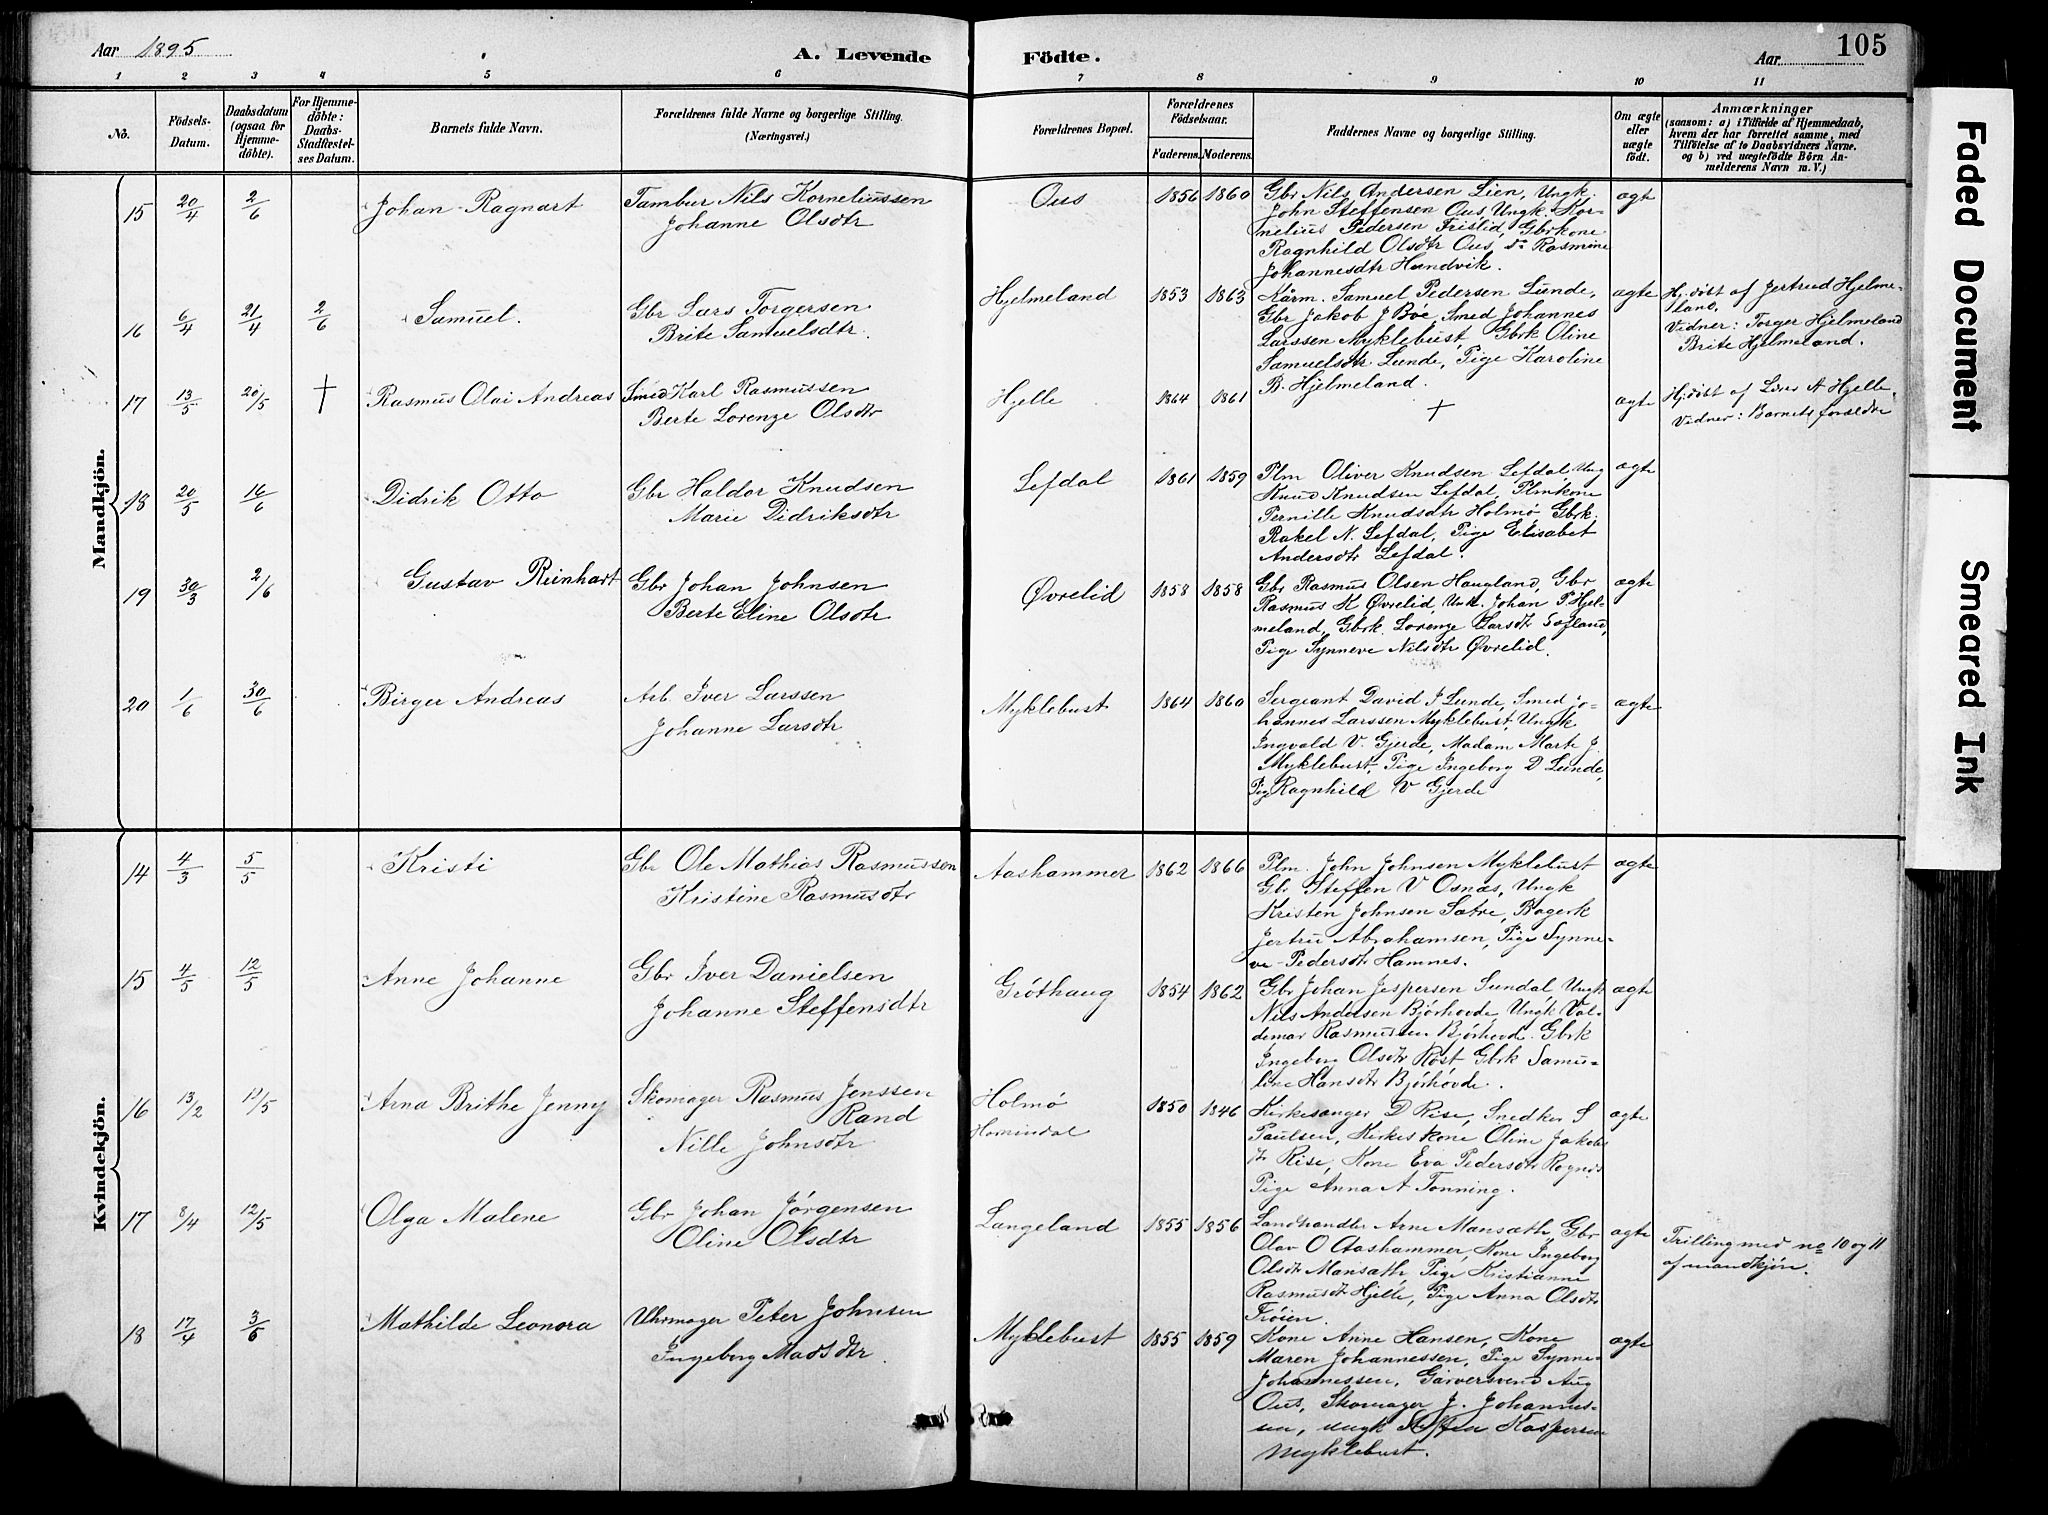 Aar 1895
A. Levende
Födte.
Aar
105
1 2 3 4 5 6 7 8 9 10 11
No.
Födsels-
Datum.
Daabsdatum
(ogsaa for
Hjemme-
döbte).
For Hjemme-
döbte:
Daabs-
Stadfæstel-
ses Datum.
Barnets fulde Navn.
Forældrenes fulde Navne og borgerlige Stilling.
(Næringsvei.)
Forældrenes Bopæl.
Forældrenes
Födselsaar.
Faderens.
Moderens.
Faddernes Navne og borgerlige Stilling.
Om ægte
eller
uægte
födt.
Anmærkninger
(saasom: a) i Tilfælde af Hjemmedaab,
hvem der har forrettet samme, med
Tilföielse af to Daabsvidners Navne.
og b) ved uægtefödte Börn An-
melderens Navn m. V.)
Mandkjön.
15 20/4 2/6 Johan Ragnart
Tambur Nils Korneliussen
Johanne Olsdtr
Ous 1856 1860
Gbr Nils Andersen Lien, Ungk.
John Steffensen Ous, Ungk. Kor-
nelius Pedersen Frislid, Gbrkone
Ragnhild Olsdtr Ous, do Rasmine
Johannesdtr Hundvik.
ægte
16 6/4 21/4 2/6 Samuel.
Gbr Lars Torgersen
Brite Samuelsdtr.
Hjelmeland 1853 1863
Kårm. Samuel Pedersen Lunde,
Gbr Jakob J Bøe, Smed Johannes
Larssen Myklebust, Gbrk Oline
Samuelsdtr Lunde, Pige Karoline
B. Hjelmeland.
ægte
Hj.døbt af Jertrud Hjelme-
land.
Vidner: Torger Hjelmeland
Brite Hjelmeland.
17 13/5 20/5 † Rasmus Olai Andreas
Smed Karl Rasmussen
Berte Lorenze Olsdtr
Hjelle 1864 1861
†
ægte
Hj.døbt af Lars A Hjelle,
Vidner: Barnets forældre
18 20/5 16/6 Didrik Otto
Gbr Haldor Knudsen
Marie Didriksdtr
Lefdal 1861 1859
Plm Oliver Knudsen Lefdal, Ung
Knud Knudsen Lefdal, Plmkone
Pernille Knudsdtr Holmø Gbrk.
Rakel N. Lefdal, Pige Elisabet
Andersdtr Lefdal.
ægte
19 30/3 2/6 Gustav Reinhart
Gbr Johan Johnsen
Berte Eline Olsdtr
Øvrelid 1858 1858
Gbr Rasmus Olsen Haugland, Gbr
Rasmus K Øvrelid, Unk. Johan P. Hjel-
meland, Gbrk. Lorenze Larsdtr
Pige Synneve Nilsdtr Øvrelid.
ægte
20 1/6 30/6 Birger Andreas
Arb. Iver Larssen
Johanne Larsdtr
Myklebust 1864 1860
Sergeant David J Lunde, Smed Jo-
hannes Larssen Myklebust, Ungk
Ingvald V. Gjerde, Madam Marte J.
Myklebust, Pige Ingeborg D Lunde,
Pige Ragnhild V Gjerde
ægte
Kvindekjön.
14 4/3 5/5 Kristi
Gbr Ole Mathias Rasmussen
Kristine Rasmusdtr
Aashammer 1862 1866
Plm. John Johnsen Myklebust
Gbr Steffen V Osnas, Ungk
Kristen Johnsen Sætre, Bagerk
Jertru Abrahamsen, Pige Synne-
ve Pedersdtr Hamnes.
ægte
15 4/5 12/5 Anne Johanne
Gbr Iver Danielsen
Johanne Steffensdtr
Grøthaug 1854 1862
Gbr Johan Jespersen Sundal, Ungk
Nils Andersen Bjørhovde, Ungk Val-
demar Rasmussen Bjørhovd. Gbrk
Ingeborg Olsdtr Røst Gbrk Samu-
line Hansdtr Bjørhovde.
ægte
16 13/2 12/5 Arna Brithe Jenny
Skomager Rasmus Jenssen
Rand
Nille Johnsdtr
Holmø
Hornindal
1850 1846
Kirkesanger D Rise, Snedker S
Paulsen, Kirkes kone Oline Jakobs
dtr Rise, Kone Eva Pedersdtr
Pige Anna A Tonning.
ægte
17 8/4 12/5 Olga Malene
Gbr Johan Jørgensen
Oline Olsdtr
Langeland 1855 1856
Landhandler Arne Mansæth, Gbr
Olav O Aashammer, Kone Ingeborg
Olsdtr Mansæth, Pige Kristianne
Rasmusdtr Hjelle, Pige Anna Olsdtr
Frøien.
ægte
Trilling med no 10 og 11
af mandkjøn.
18 17/4 3/6 Mathilde Leonora
Uhrmager Peter Johnsen
Ingeborg Madsdtr.
Myklebust 1855 1859
Kone Anne Hansen, Kone
Maren Johannessen, Pige Synne-
Johannessen, Garversvend Aug
Ous, Skomager J. Johannes-
sen, ungk Steffen Kaspersen
Myklebust.
ægte
Faded Document
Smeared Ink